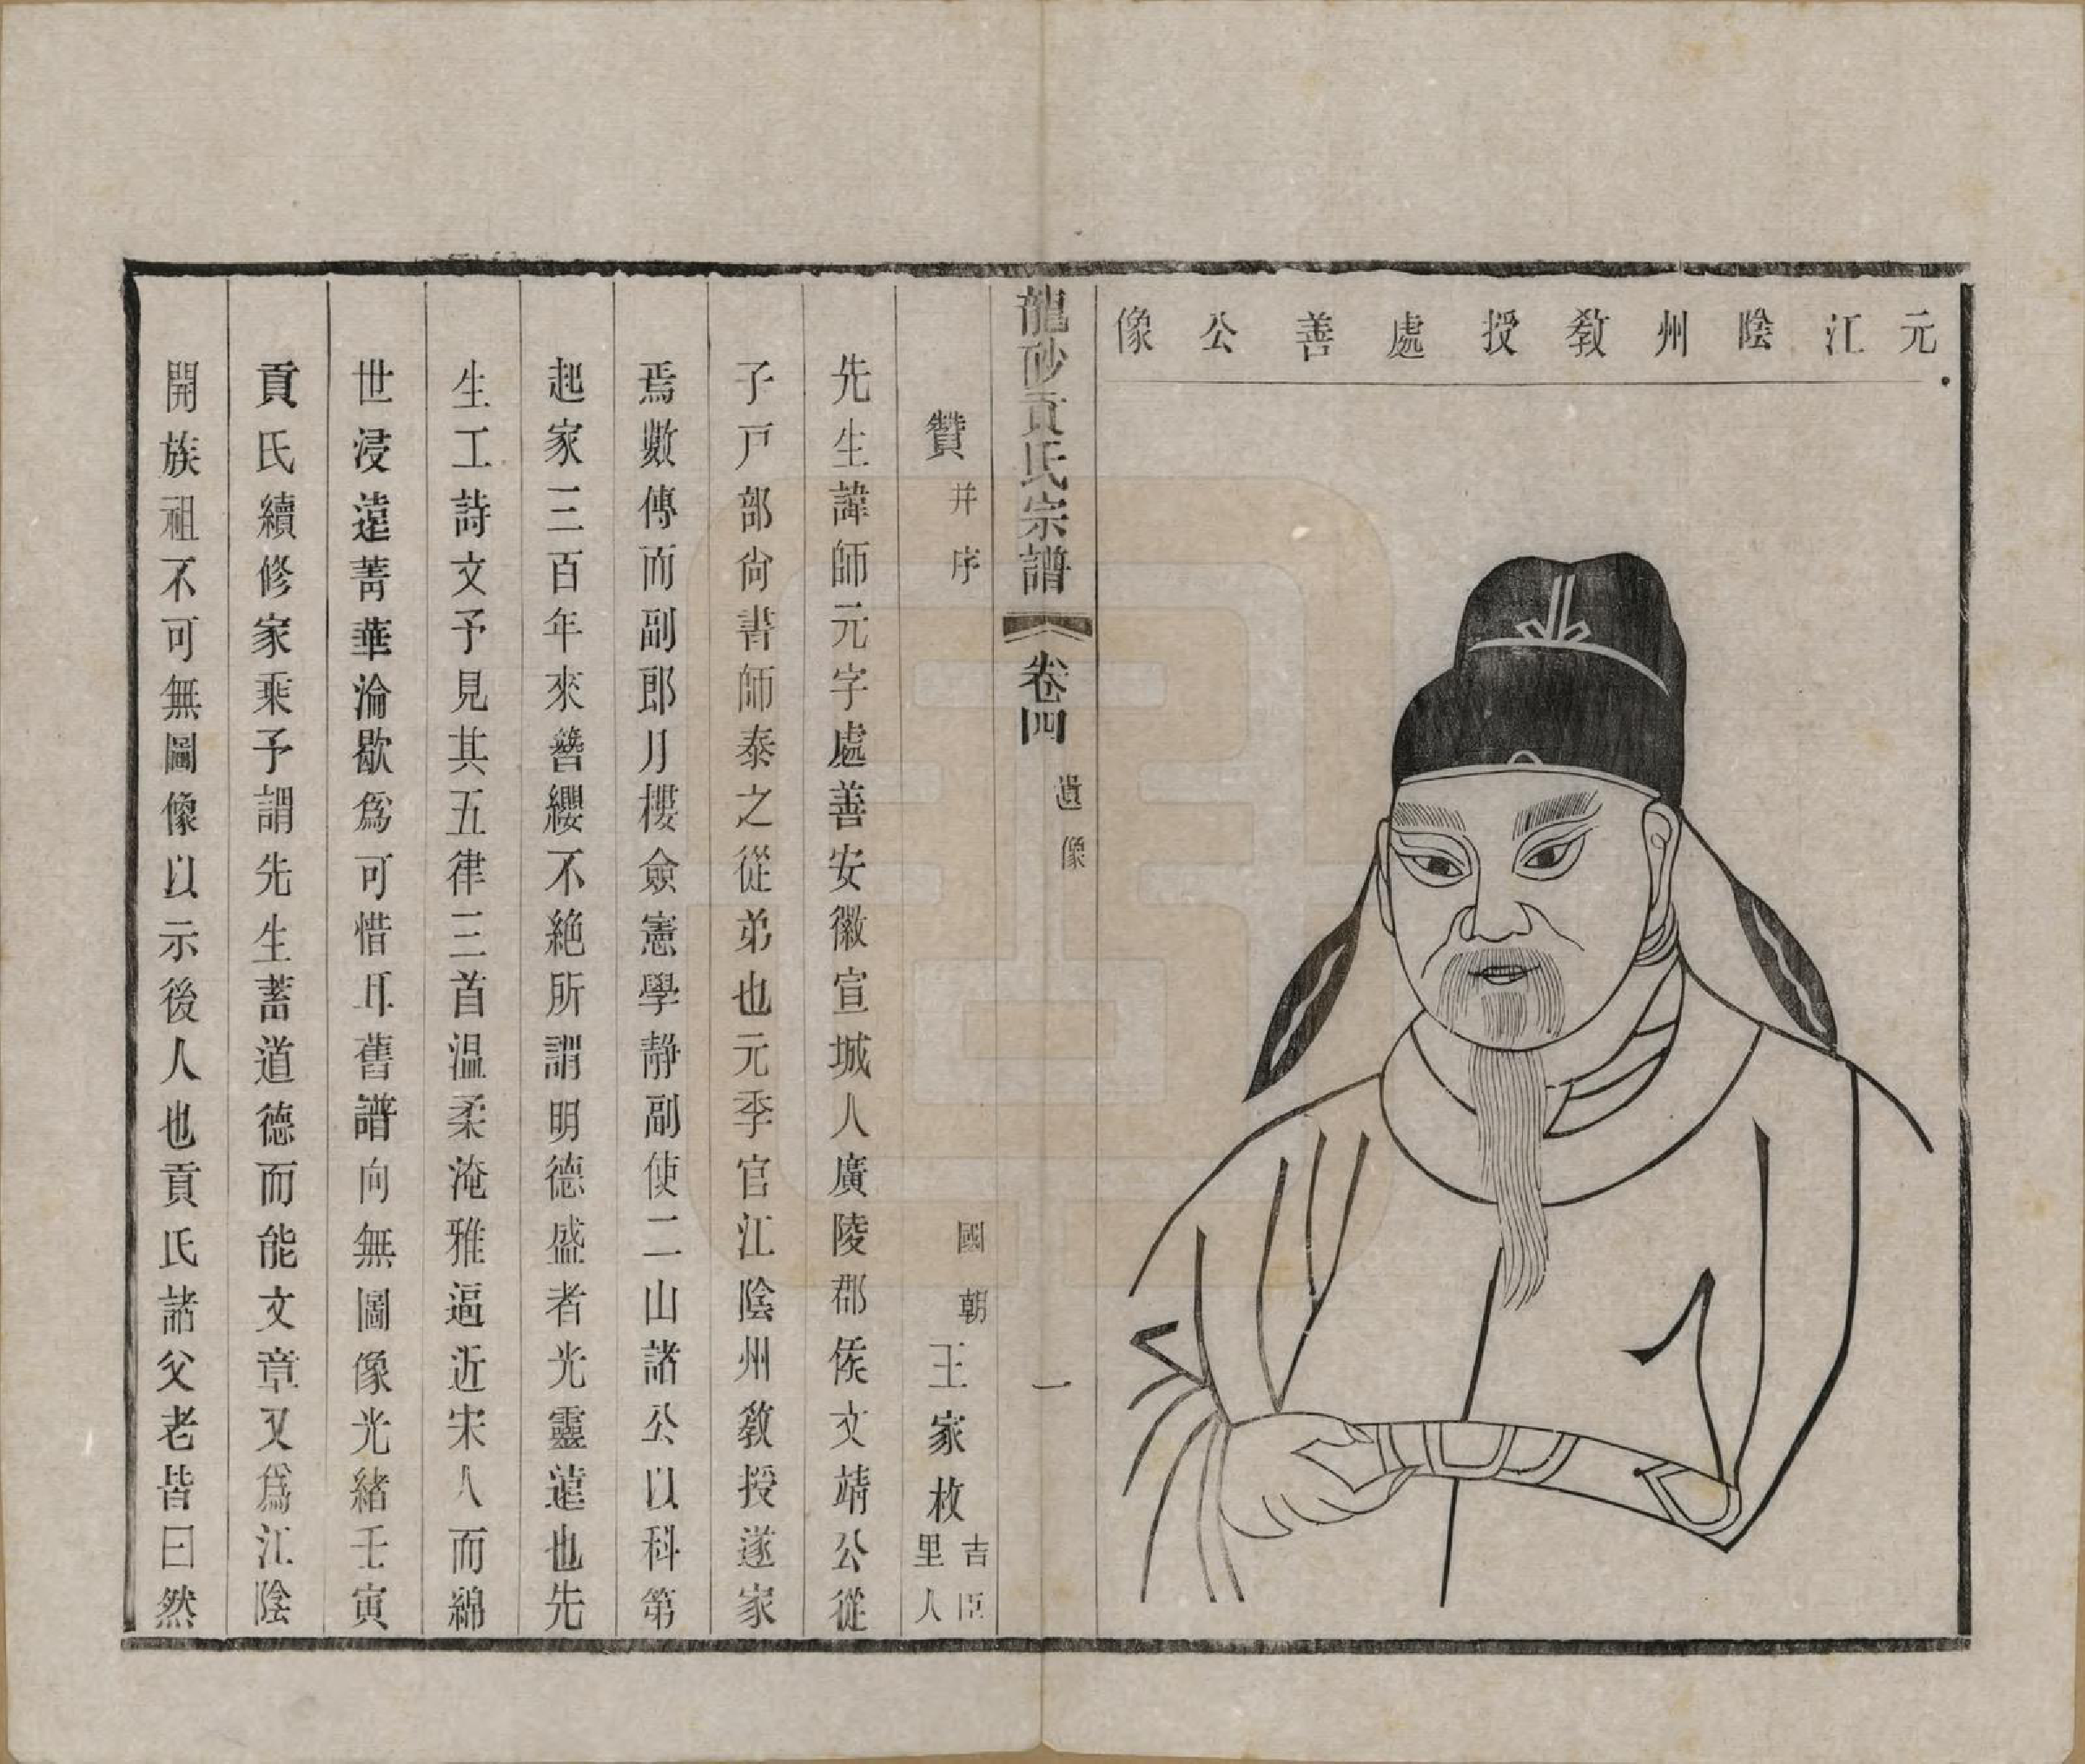 元江陰州教授處善公像
龍砂貢氏宗譜 卷四 遺像 一
贊 并序 國朝 王家枚 吉臣 里人
先生諱師元字處善安徽宣城人廣陵郡侯文靖公從
子戸部尙書師泰之從弟也元季官江陰州教授遂家
焉數傳而副郎月樓僉憲學静副使二山諸公以科第
起家三百年來簪纓不絶所謂明德盛者光靈遠也先
生工詩文予見其五律三首温柔淹雅逼近宋人而綿
世浸遠菁華淪歇爲可惜耳舊譜向無圖像光緒壬寅
貢氏續修家乘予謂先生蓄道德而能文章又爲江陰
開族祖不可無圖像以示後人也貢氏諸父老皆曰然